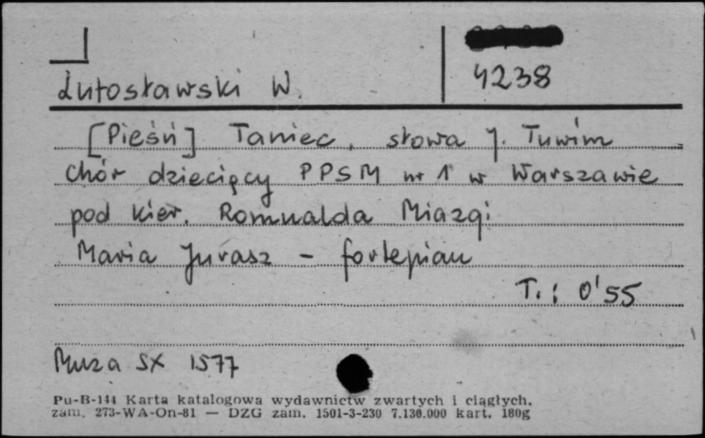 Lutosławski W.
4238
[Pieśń] Taniec, słowa J. Tuwim
Chór dziecięcy PPSM nr 1 w Warszawie
pod kier. Romualda Miazgi
Maria Jurasz - fortepian
T.: 0'55
Muza SX 1577
Pu-B-144 Karta katalogowa wydawnictw zwartych i ciągłych.
zam. 273-WA-On-81 — DZG zam. 1501-3-230 7.130.000 kart. 180g